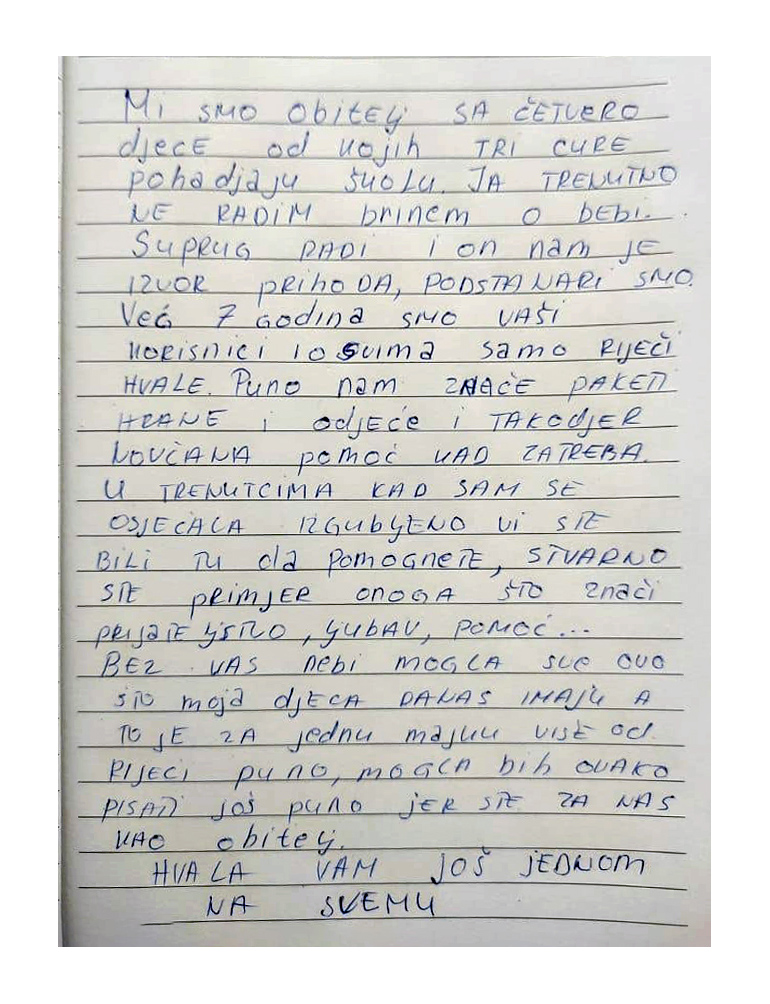 Mi SMO ObitELj SA ČETVERO
djECE od kojih TRI CURE
pohadjaju ŠKOLU. JA TRENUTNO
NE RADIM brinem O bEbi.
SUPRUG RADI i on nam jE
IZVOR prihoDA, PODSTANARi SMO.
VEĆ 7 godina SMO VAŠi
KORISNICI i o svima samo RIJEČI
HVALE. Puno nam ZNAČE PAKETI
HRANE i odjEĆE i TAKOdjER
NOVČANA pomoć KAD ZATREBA.
U TRENUTCIMA KAD SAM SE
OSJEĆALA IZGUbLjENO Vi STE
BILI TU da POMOGNETE, STVARNO
STE primjER ONOGA ŠTO znači
PRIJATELjSTVO, LjUBAV, POMOĆ...
BEZ VAS nebi MOGLA SVE OVO
ŠTO moja djECA DANAS IMAJU A
TO jE ZA jednu majku VIŠE od
RIJEČI puno, MOGLA bih OVAKO
PISATI još puno jER STE ZA NAS
KAO obitelj.
HVALA VAM JOŠ JEDNOM
NA SVEMU